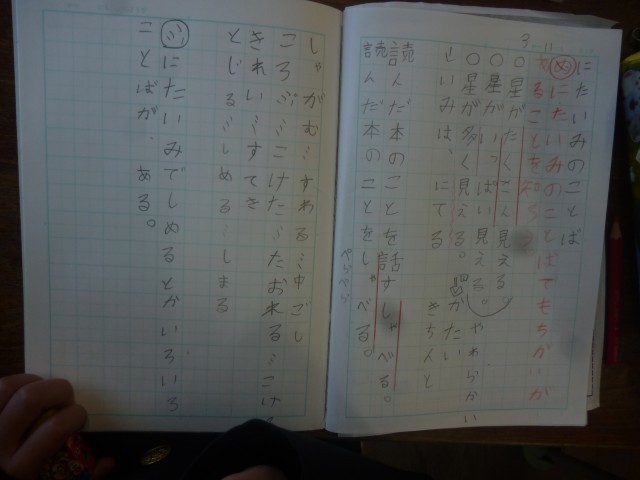 3 11
にたいみのことば
め にたいみのことばでもちがいが
あることを知
○星がたくさん見える。
○星がいっぱい見える。やわらかい
○星が多く見える。かたい
いみは、にてる きちんと
読んだ本のことを話す しゃべる。
読んだ本のことをしゃべる。
ぺらぺら
しゃがむ…すわる…中ごし
ころぶ…こけた…たおれる…こける
きれい…すてき
とじる…しめる…しまる
にたいみでしめるとかいろいろ
ことばが、ある。